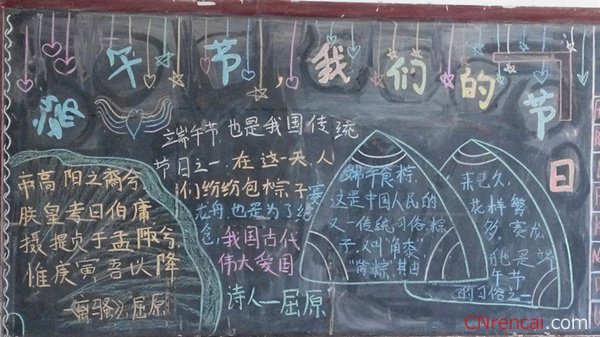 端午节,我们的节日
帝高阳之裔兮
朕皇考曰伯庸
摄提贞于孟陬兮
惟庚寅吾以降
—《离骚》屈原
端午节,也是我国传统
节日之一,在这一天,人
们纷纷包粽子赛
龙舟,也是为了纪
念,我国古代
伟大爱国
诗人—屈原
端午食粽,
这是中国人民的
又一传统习俗,粽
子,又叫“角黍”,
“筒粽”其由
来已久,
花样繁
多.赛龙
也是端
午节
的习俗之一
CNrencai.com